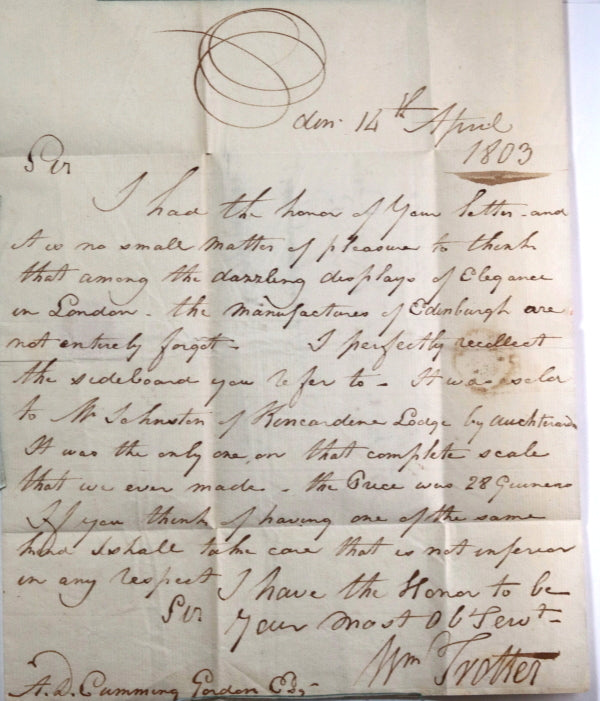 din. 14th April
1803
Sir
I had the honor of Your letter - and
it is no small matter of pleasure to think
that among the dazzling displays of Elegance
in London - the manufactures of Edinburgh are
not entirely forgot - I perfectly recollect
the sideboard you refer to - It was sold
to Mr Johnston of Kincardine Lodge by
It was the only one on that complete scale
that we ever made - the Price was 28 Guineas
If you think of having one of the same
kind I shall take care that is not inferior
in any respect I have the Honor to be
Sir Your most Obt Servt -
Wm Trotter
A. D. Cumming Gordon Esqr